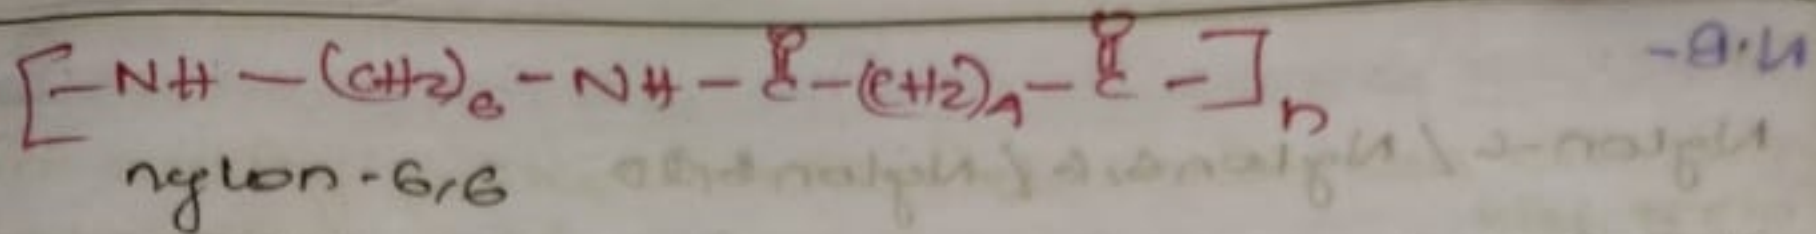 [-NH-(CH2)6-NH-C(=O)-(CH2)4-C(=O)-]n
nylon-6,6